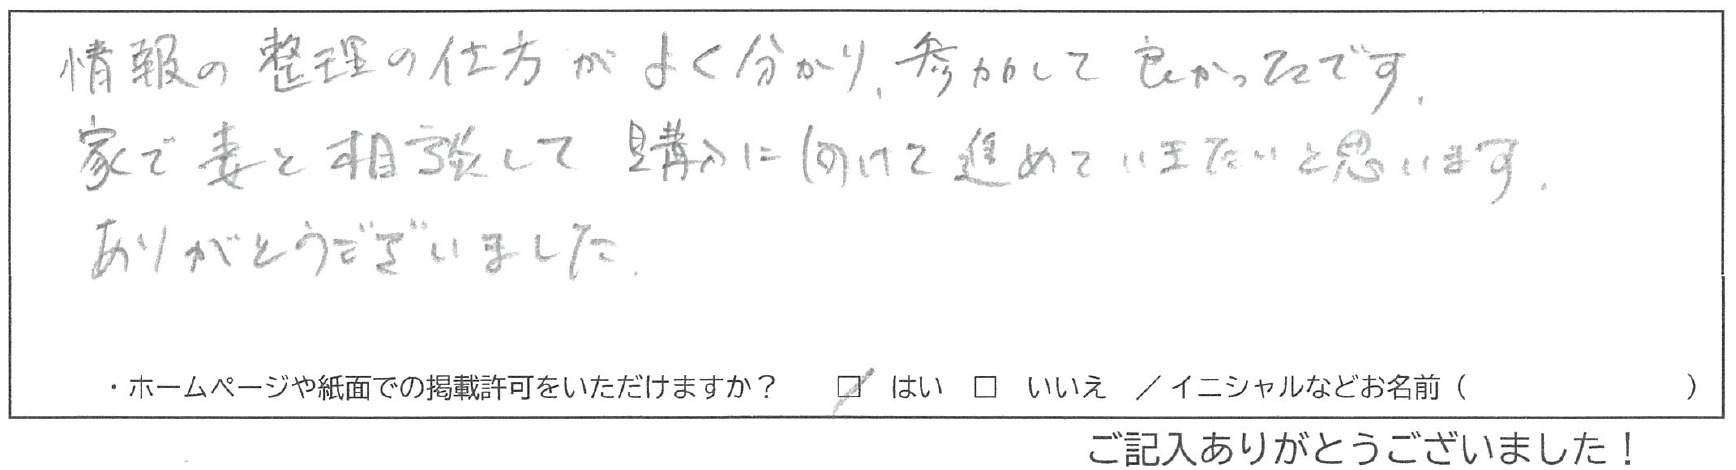 情報の整理の仕方がよく分かり、参加して良かったです。
家で妻と相談して購入に向けて進めていきたいと思います。
ありがとうございました。
・ホームページや紙面での掲載許可をいただけますか？ ☑ はい □ いいえ ／イニシャルなどお名前（ ）
ご記入ありがとうございました！